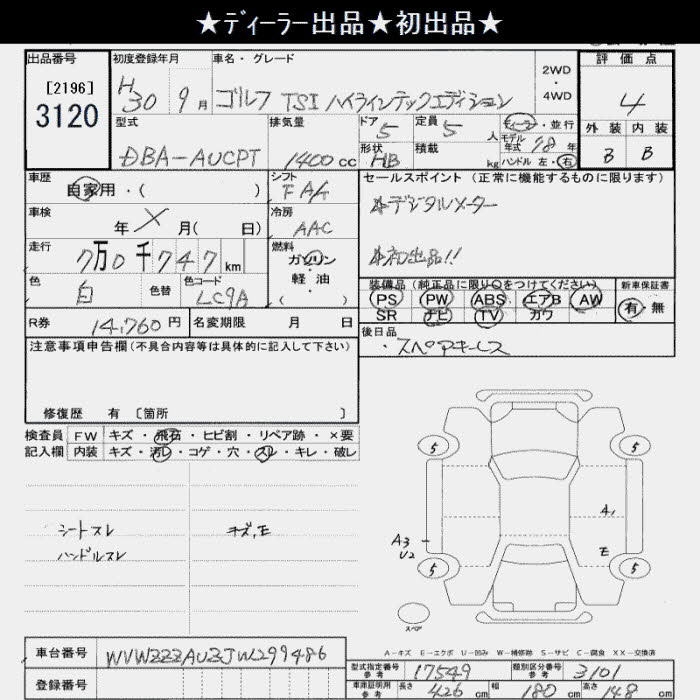 ★ディーラー出品★初出品★
出品番号
[2196]
3120
初度登録年月
H30 9月
車名・グレード
ゴルフ TSI ハイラインテックエディション
2WD
・
4WD
評価点
4
外装 内装
B B
型式
DBA-AUCPT
排気量
1400cc
ドア 5
定員 5人
形状 HB
積載 kg
ディーラー・並行
モデル年式 18年
ハンドル 左・右
車歴
自家用・( )
シフト
FA6
車検
年 月( 日)
冷房
AAC
走行
7万0千747km
燃料
ガソリン
・
軽油
( )
色
白
色替
色コード
LC9A
R券
14,760円
名変期限 月 日
セールスポイント (正常に機能するものに限ります)
☆デジタルメーター
☆初出品!!
装備品(純正品に限り○をつけてください)
PS PW ABS エアB AW
SR ナビ TV カワ
新車保証書
有・無
後日品
・スペアキーレス
注意事項申告欄(不具合内容等は具体的に記入して下さい)
修復歴 有 〔箇所 〕
検査員記入欄
FW キズ・飛石・ヒビ割・リペア跡・×要
内装 キズ・汚レ・コゲ・穴・スレ・キレ・破レ
シートスレ
ハンドルスレ
キズ,E
5 5
A1
A3
U2
E
5 5
スペア
A-キズ E-エクボ U-凹み W-補修跡 S-サビ C-腐食 XX-交換済
車台番号 WVWZZZAUZJW299486
登録番号
型式指定番号参考 17549
類別区分番号参考 3101
車庫証明用参考 長さ 426cm 幅 180cm 高さ 148cm